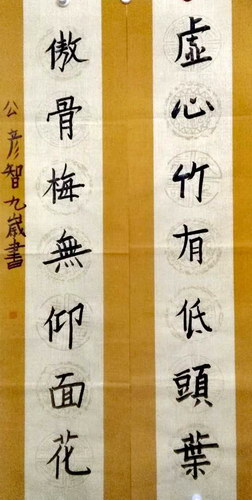 虛心竹有低頭葉
傲骨梅無仰面花
公彦智九歲書